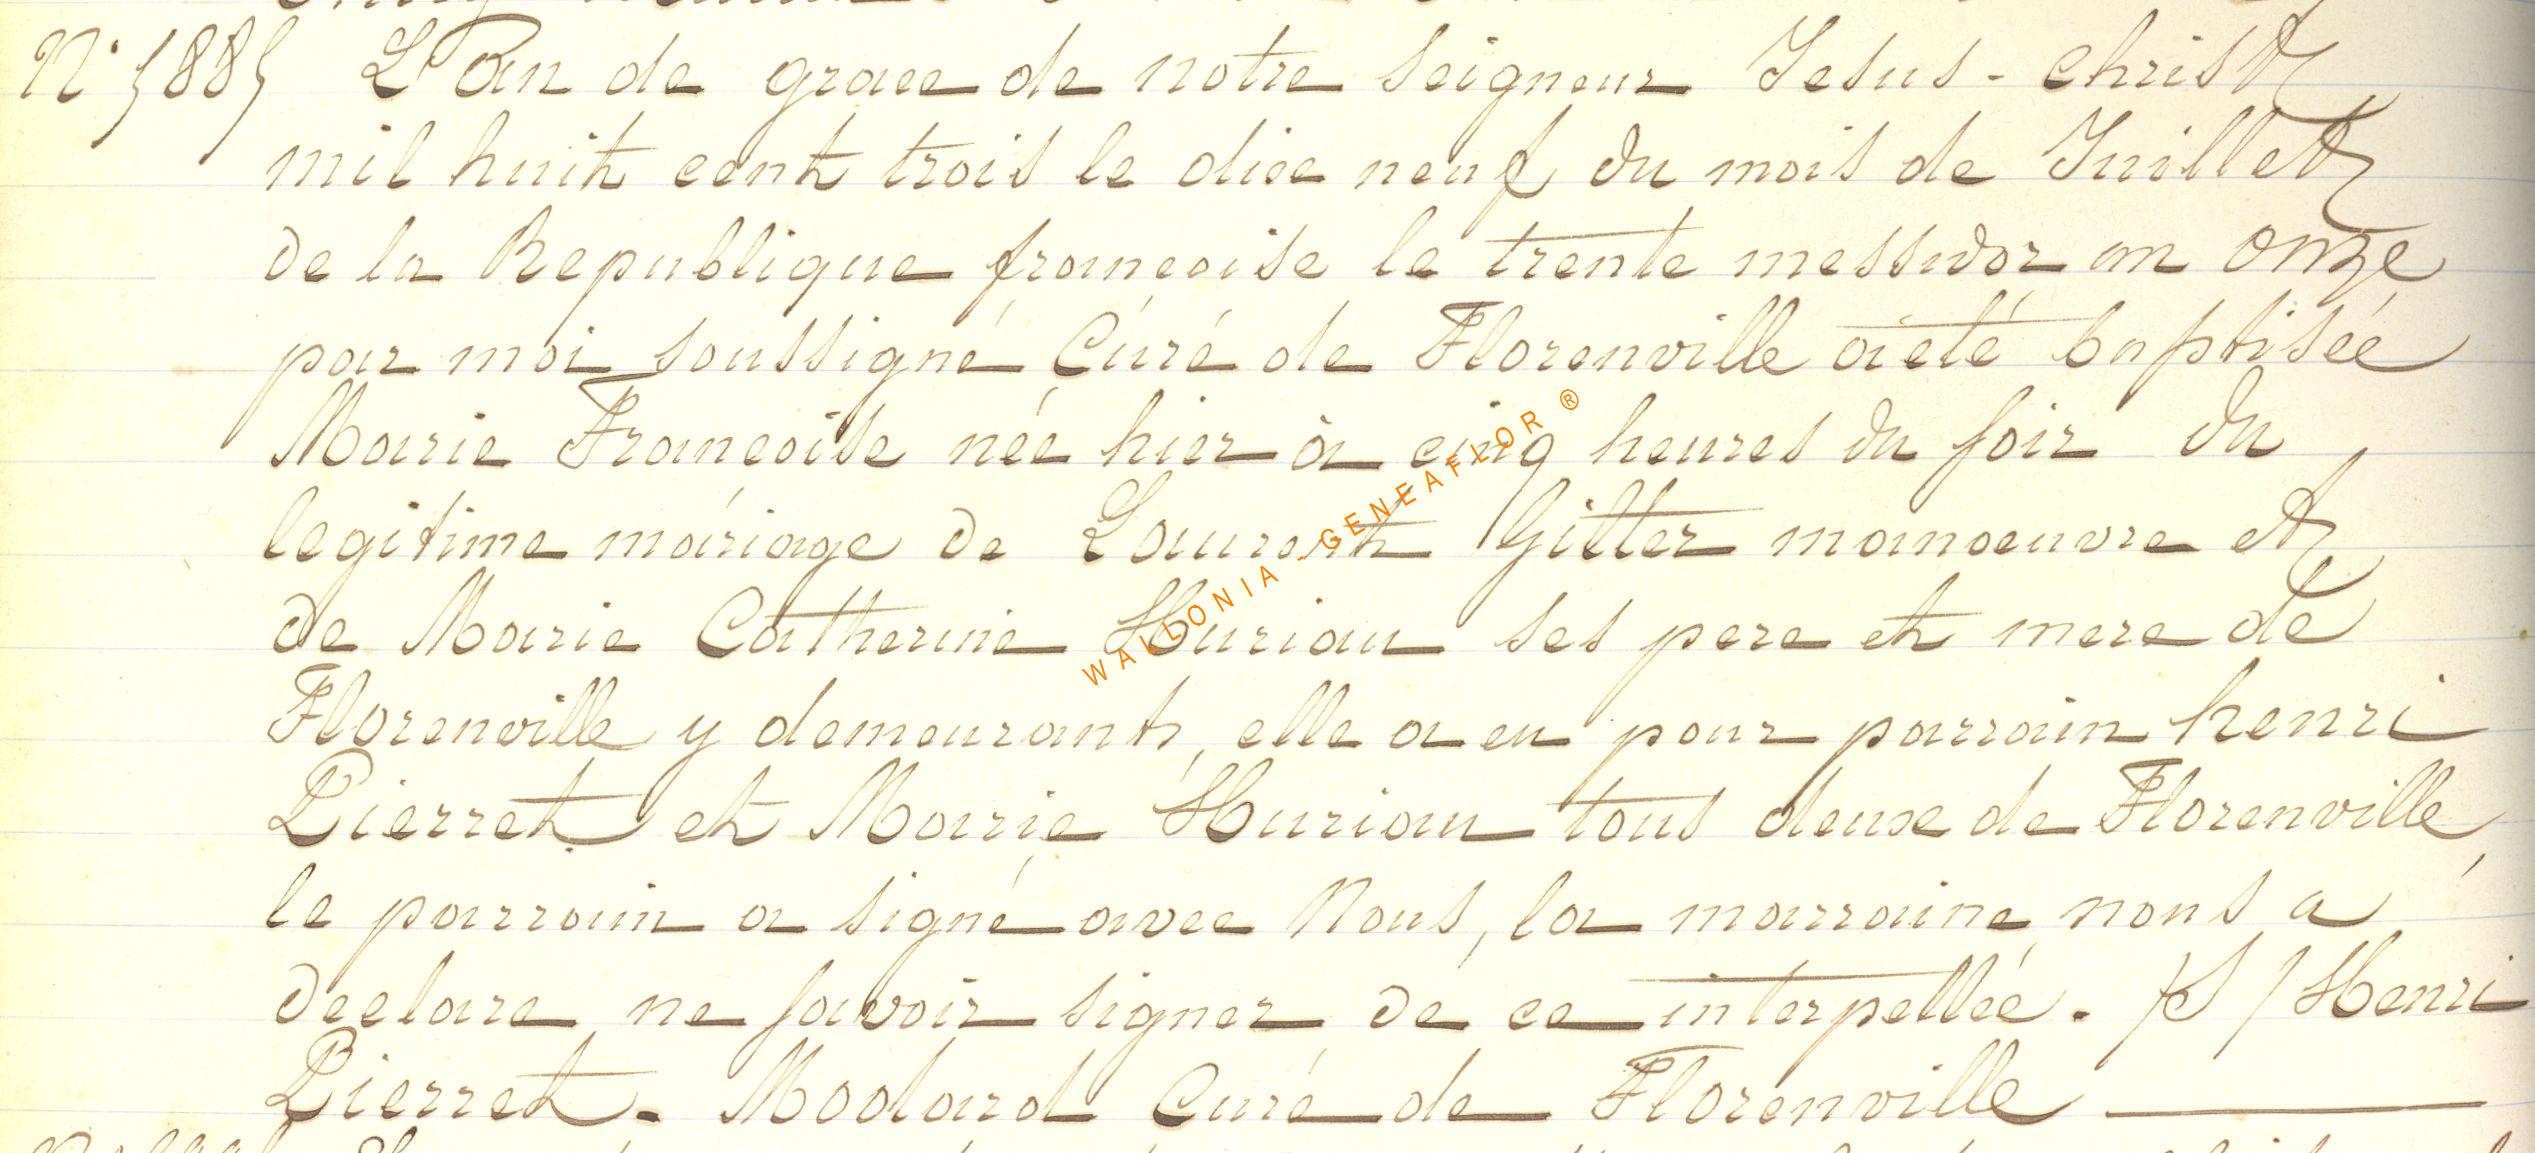 N° 1881 L'an de grace de notre seigneur Jesus-christ
mil huit cent trois le dixe neuf du mois de Juillet
de la Republique francoise le trente messidor an onze
par moi soussigné Curé de Florenville a été baptisée
Marie Francoise née hier à cinq heures du soir du
legitime mariage de Laurent Gilter manoeuvre et
de Marie Catherine Huriau ses pere et mere de
Florenville y demeurants, elle a eu pour parrain henri
Pierret et Marie Huriau tous deuxe de Florenville,
le parrain a signé avec Nous, la marraine nous a
declare ne savoir signer de ce interpellée. /S/ Henri
Pierret. Modard Curé de Florenville
WALLONIA - GENEAFLOR ®